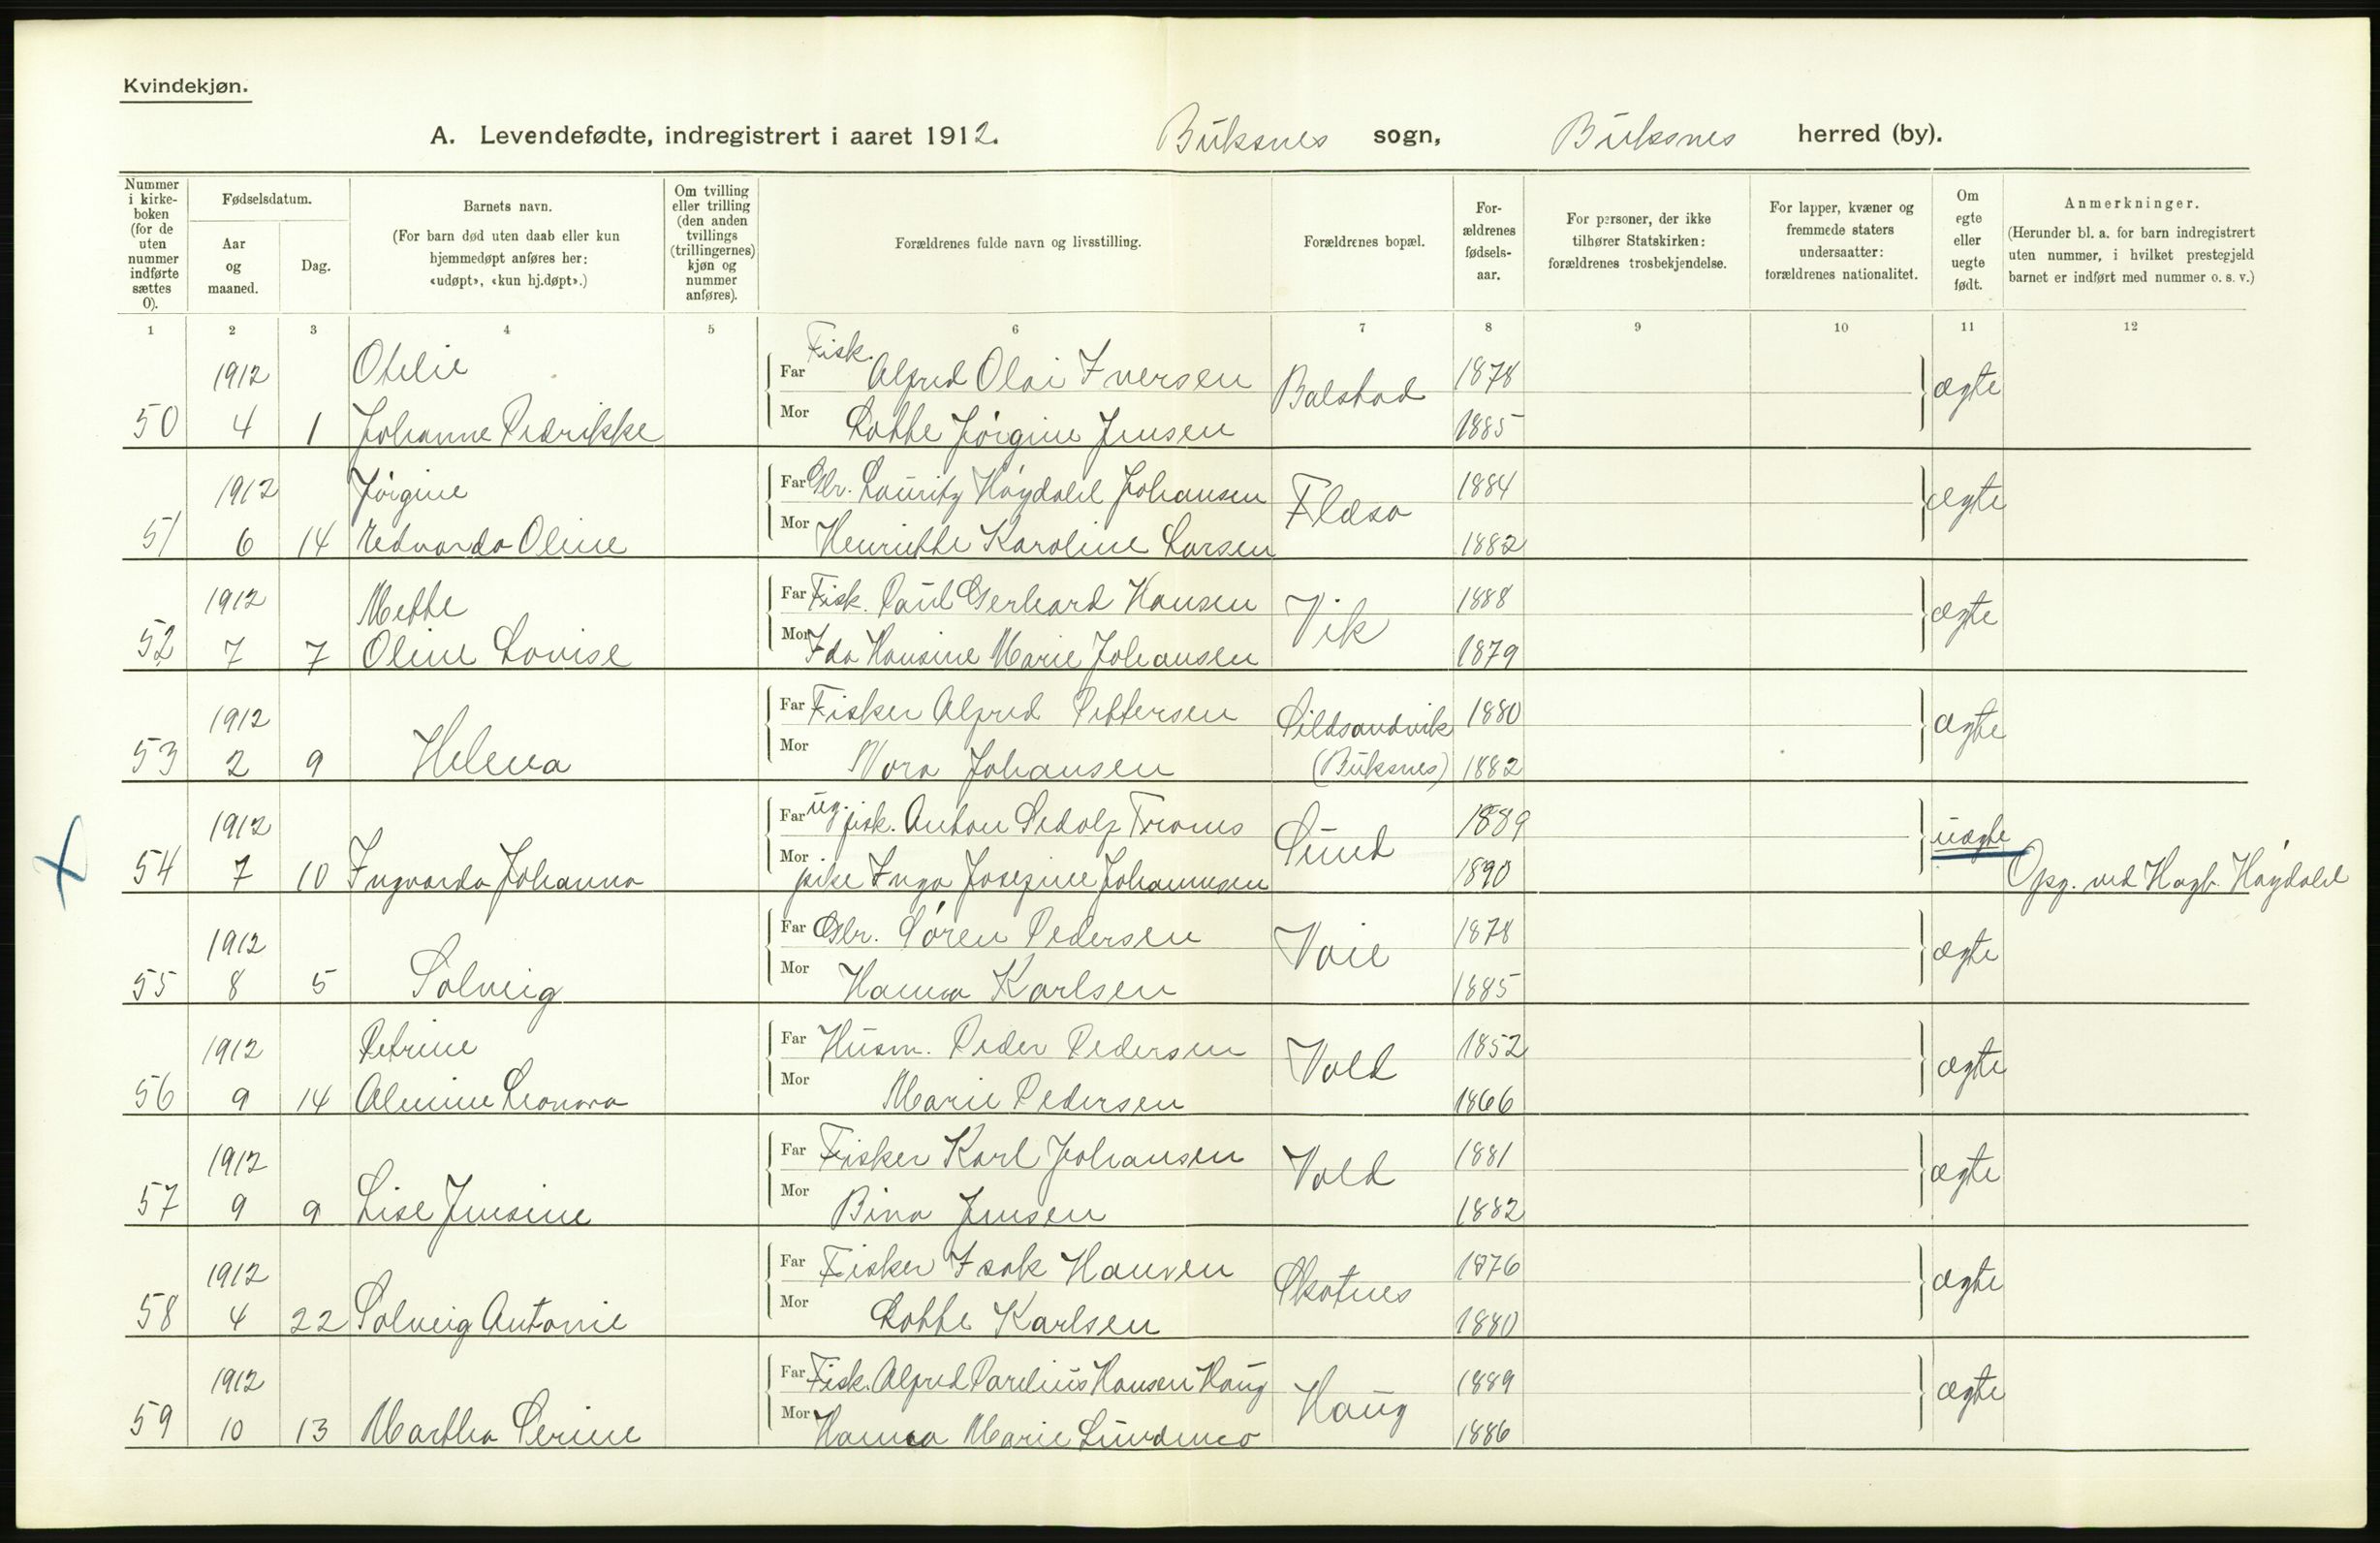 Kvindekjøn.
A. Levendefødte, indregistrert i aaret 1912. Buksnes sogn, Buksnes herred (by).
Nummer i kirke-boken (for de uten nummer indførte sættes 0).
Fødselsdatum.
Aar og maaned.
Dag.
Barnets navn.
(For barn død uten daab eller kun hjemmedøpt anføres her: «udøpt», «kun hj.døpt».)
Om tvilling eller trilling (den anden tvillings (trillingernes) kjøn og nummer anføres).
Forældrenes fulde navn og livsstilling.
Forældrenes bopæl.
For-ældrenes fødsels-aar.
For personer, der ikke tilhører Statskirken: forældrenes trosbekjendelse.
For lapper, kvæner og fremmede staters undersaatter: forældrenes nationalitet.
Om egte eller uegte født.
Anmerkninger.
(Herunder bl. a. for barn indregistrert uten nummer, i hvilket prestegjeld barnet er indført med nummer o. s. v.)
1 2 3 4 5 6 7 8 9 10 11 12
1912 Otelie Far Fisk. Alfred Olai Iversen Balstad 1878 ægte
50 4 1 Johanne Pedrikke Mor Lotte Jørgine Jensen 1885
1912 Jørgine Far Gbr. Lauritz Høydahl Johansen Flæsa 1884 ægte
51 6 14 Edvarda Oline Mor Henriette Karoline Larsen 1882
1912 Mette Far Fisk. Paul Gerhard Hansen Vik 1888 ægte
52 7 7 Oline Lovise Mor Ida Hansine Marie Johansen 1879
1912 Far Fisker Alfred Pettersen Sildsandvik 1880 ægte
53 2 9 Helena Mor Nora Johansen (Buksnes) 1882
1912 Far ug. fisk. Anton Sedolf Troms Sund 1889 uægte
54 7 10 Ingvarda Johanna Mor pike Inga Josefine Johannesen 1890 Opg. ved Hagb. Høydahl
1912 Far Gbr. Søren Pedersen Voie 1878 ægte
55 8 5 Solveig Mor Hanna Karlsen 1885
1912 Petrine Far Husm. Peder Pedersen Vold 1852 ægte
56 9 14 Almine Leonora Mor Marie Pedersen 1866
1912 Far Fisker Karl Johansen Vold 1881 ægte
57 9 9 Lise Jensine Mor Bina Jensen 1882
1912 Far Fisker Isak Hansen Skotnes 1876 ægte
58 4 22 Solveig Antonie Mor Lotte Karlsen 1880
1912 Far Fisk. Alfred Parelius Hansen Haug Haug 1889 ægte
59 10 13 Martha Serine Mor Hanna Marie 1886